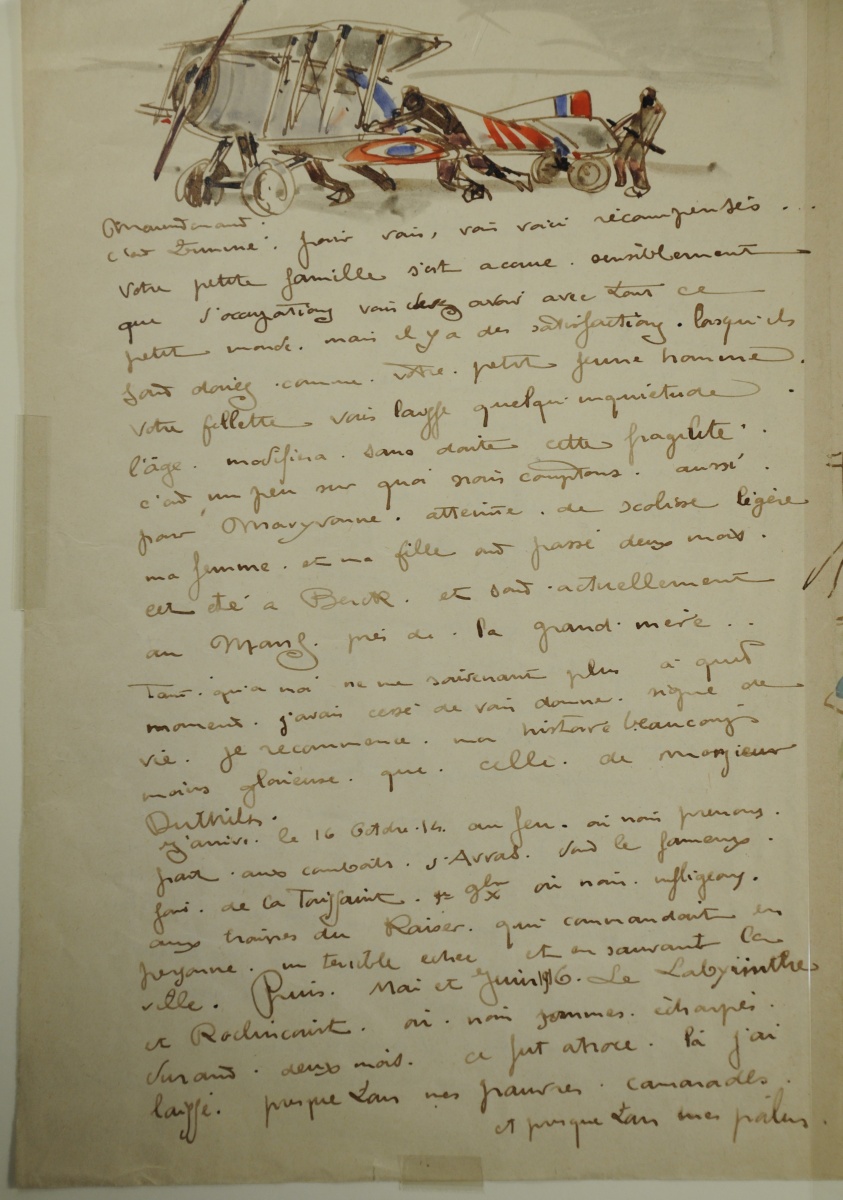 Maintenant.
c'est Limme. pour vous, vous voici récompensés ...
votre petite famille s'est accrue. sensiblement
que d'occupations vous devez avoir avec tout ce
petit monde. mais il y a des satisfactions. lorsqu'ils
sont douées. comme. votre. petit jeune homme.
votre fillette vous laisse quelqu'inquiétude.
l'âge. modifiera. sans doute cette fragilité.
c'est un peu sur quoi nous comptons. aussi.
pour Maryvonne. atteinte. de scoliose légère
ma femme. et ma fille ont passé deux mois.
cet été à Berck. et sont. actuellement
au Mans. près de. la grand'mère..
Tant. qu'à moi ne me souvenant plus à quel
moment. j'avais cessé de vous donner. signe de
vie. je recommence. mon histoire beaucoup
moins glorieuse. que. celle. de monsieur
Duthils.
J'arrive. le 16 Octobre. 14. au feu. où nous prenons.
part. aux combats. d'Arras. dont le fameux.
jour. de la Toussaint. où nous. infligeons.
aux troupes du Kaiser. qui commandait en
personne. un terrible echec et en sauvant la
ville. Puis. Mai et Juin 1916. Le Labyrinthe
et Roclincourt. où. nous sommes. écharpés.
durant. deux mois. ce fut atroce. là j'ai
laissé. presque tous mes pauvres. camarades.
et presque tous mes poilus.